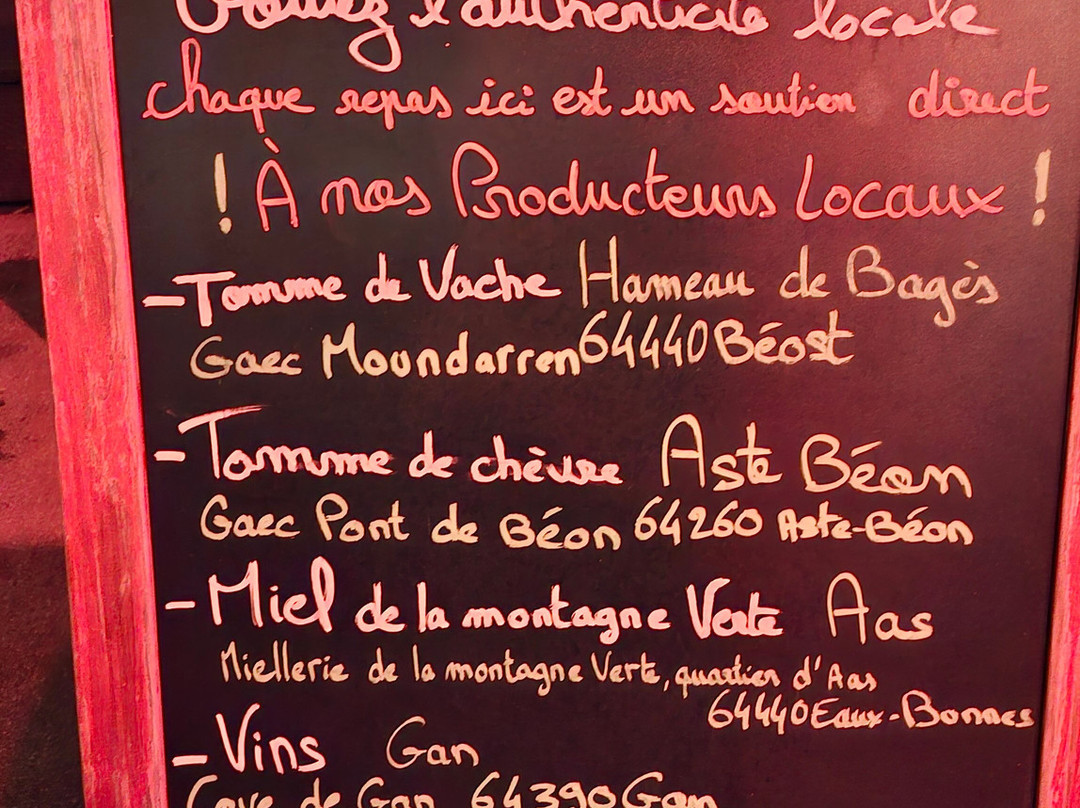 l'authenticité locale
chaque repas ici est un soutien direct
! À nos Producteurs Locaux !
- Tomme de Vache Hameau de Bagès
Gaec Moundarren 64440 Béost
- Tomme de chèvre Aste Béon
Gaec Pont de Béon 64260 Aste-Béon
- Miel de la montagne Verte Aas
Miellerie de la montagne Verte, quartier d'Aas
64440 Eaux-Bonnes
- Vins Gan
Cave de Gan 64390 Gan